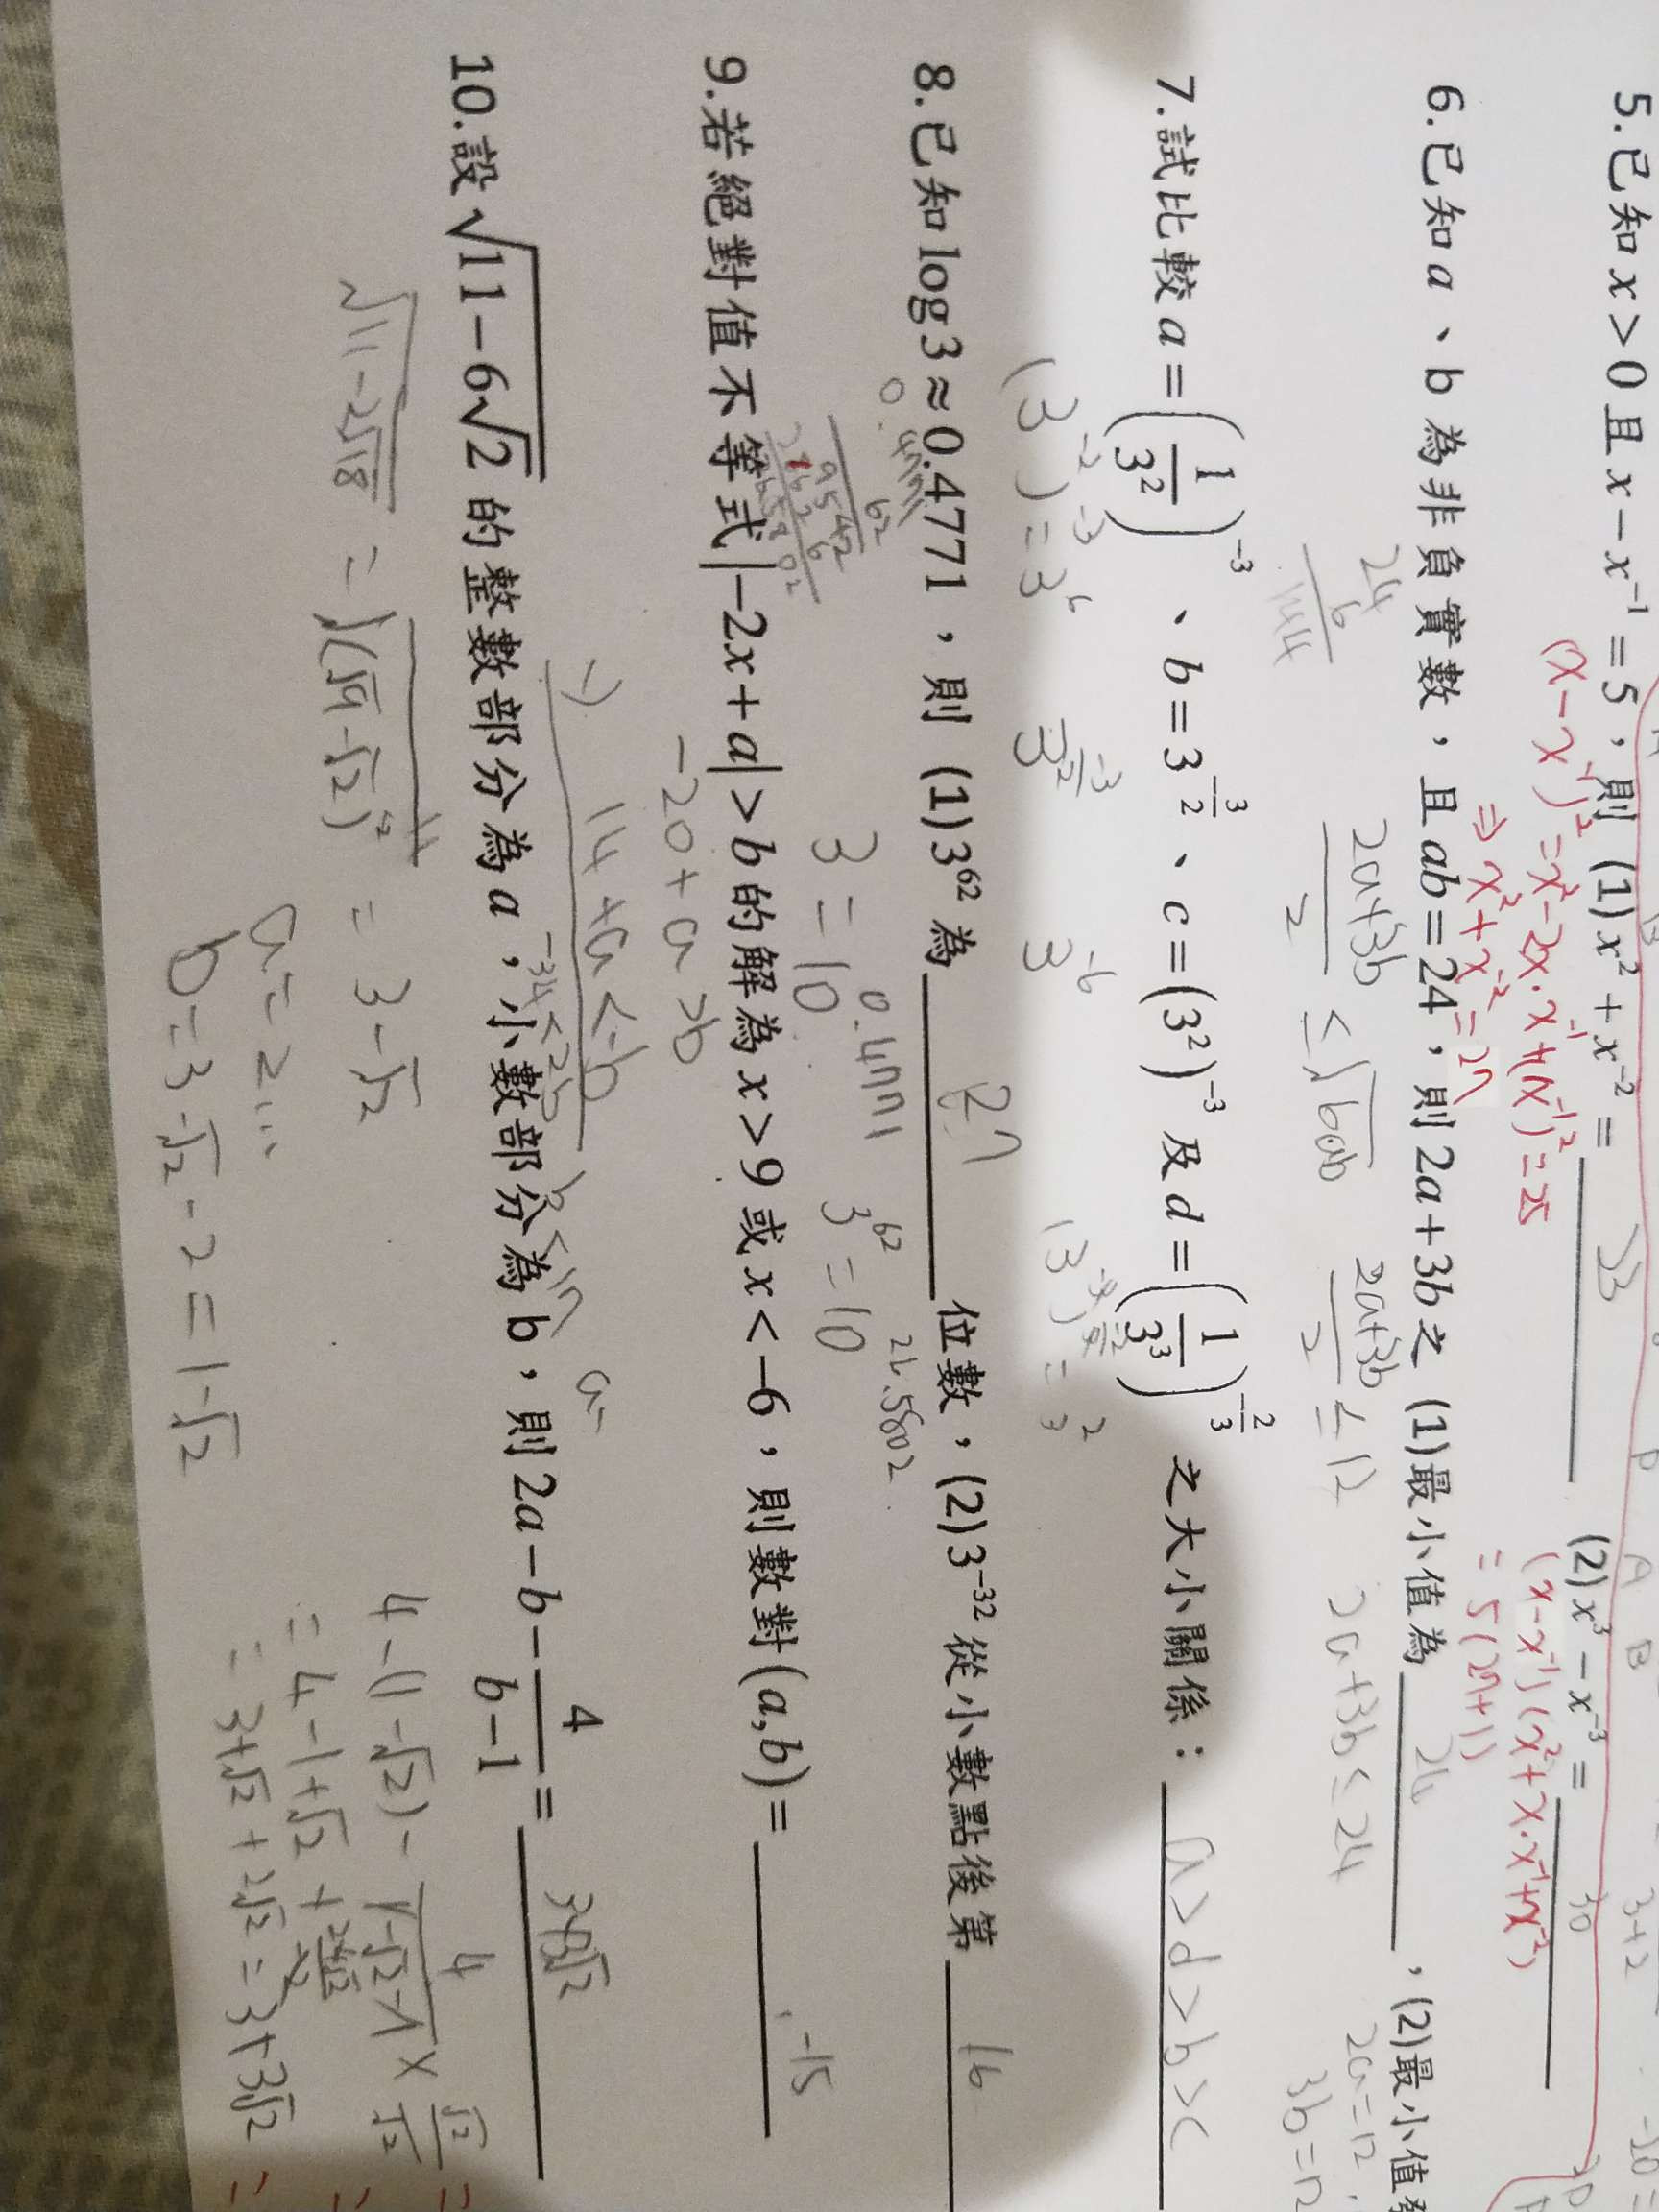 5.已知 x>0 且 x-x⁻¹=5，則 (1) x²+x⁻²= 27 (2) x³-x⁻³= 30
(x-x⁻¹)²=x²-2x·x⁻¹+(x⁻¹)²=25
(x-x⁻¹)(x²+x·x⁻¹+x⁻²)
⇒ x²+x⁻²=27
=5(27+1)
6.已知 a、b 為非負實數，且 ab=24，則 2a+3b 之 (1)最小值為 24 ，(2)最小值發
24
6
144
(2a+3b)/2 ≤ √6ab
(2a+3b)/2 ≤ 12
2a+3b ≤ 24
2a=12
3b=12
7.試比較 a=(1/3²)⁻³、b=3^(-3/2)、c=(3²)⁻³ 及 d=(1/3³)^(-2/3) 之大小關係： a>d>b>c
(3⁻²)⁻³=3⁶
3^(-3/2)
3⁻⁶
8.已知 log3≈0.4771，則 (1) 3⁶² 為 27 位數，(2) 3⁻³² 從小數點後第 16
0.4771
62
9542
3=10^0.4771
3⁶²=10^26.5802
9.若絕對值不等式 |-2x+a|>b 的解為 x>9 或 x<-6，則數對 (a,b)= -15
-20+a>b
-) 14+a<-b
10.設 √(11-6√2) 的整數部分為 a，小數部分為 b，則 2a-b-4/(b-1)= 3+3√2
√(11-2√18) = √(√9-√2)² = 3-√2
a=2...
b=3-√2-2=1-√2
4-(1-√2)-4/(1-√2-1)×√2/√2=
=4-1+√2+
=3+√2+2√2=3+3√2